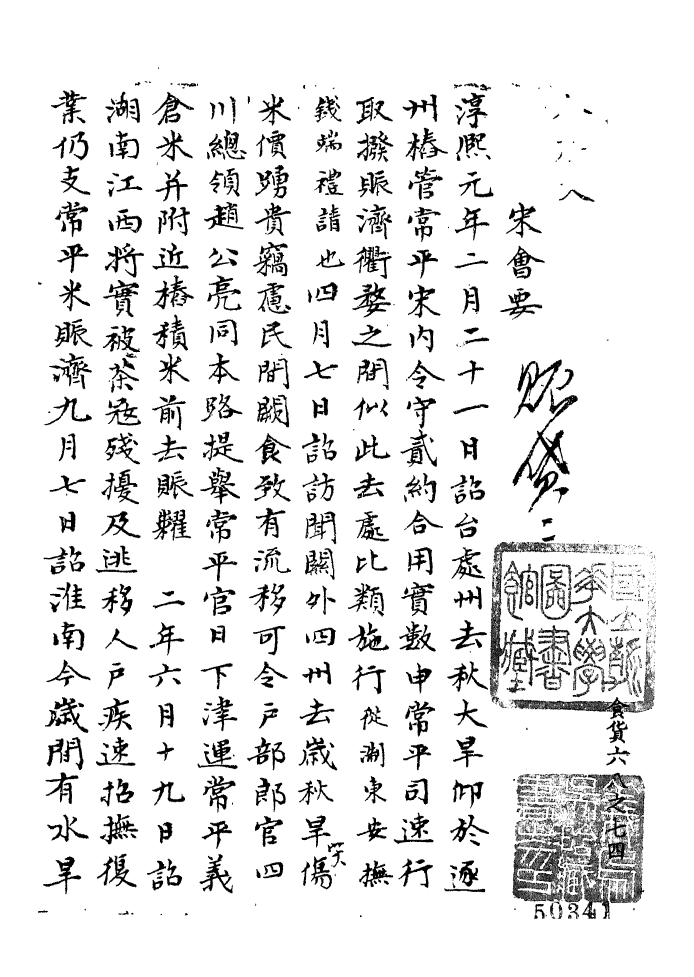 宋會要
賑貸二
淳熙元年二月二十一日詔台處州去秋大旱仰於逐
州樁管常平米內令守貳約合用實數申常平司速行
取撥賑濟衢婺之間似此去處比類施行從淛東安撫
錢端禮請也四月七日詔訪聞關外四州去歲秋旱傷
米價踴貴竊慮民間闕食致有流移可令戶部郎官四
川總領趙公亮同本路提舉常平官日下津運常平義
倉米并附近樁積米前去賑糶 二年六月十九日詔
湖南江西將實被茶寇殘擾及逃移人戶疾速招撫復
業仍支常平米賑濟九月七日詔淮南今歲間有水旱
食貨六八之七四
50341